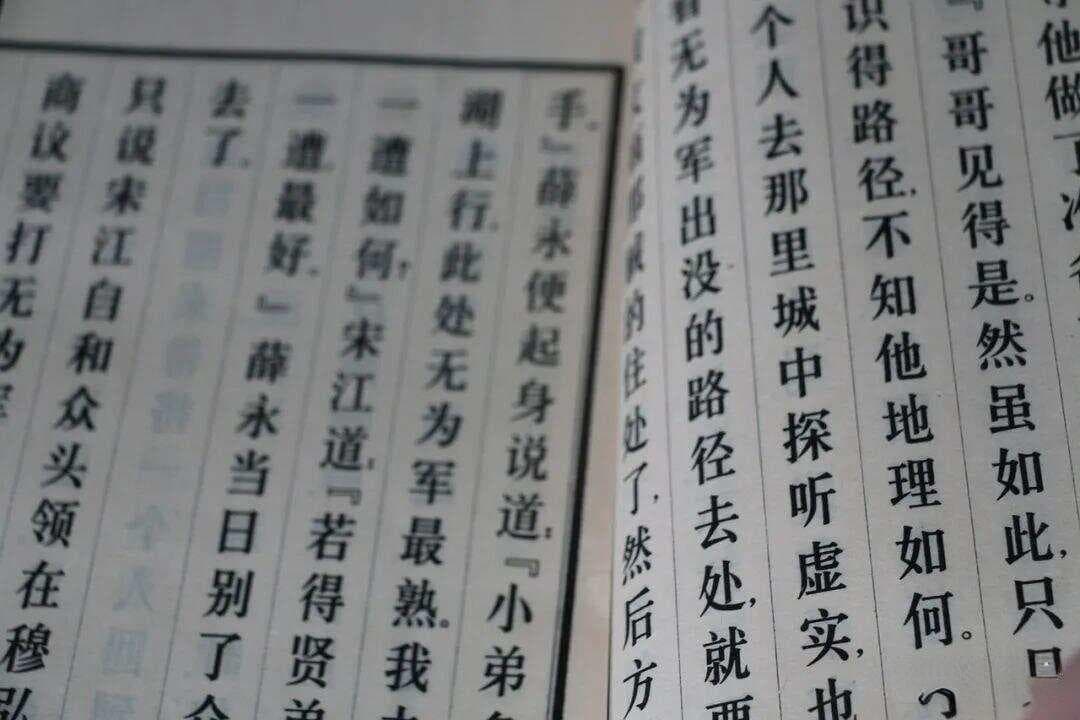 他做了
『哥哥见得是。然虽如此，只
识得路径，不知他地理如何。
个人去那里城中探听虚实，也
看无为军出没的路径去处，就要
的住处了，然后方
手。』薛永便起身说道：『小弟
湖上行，此处无为军最熟。我
一遭如何？』宋江道：『若得贤弟
一遭，最好。』薛永当日别了众
去了。
只说宋江自和众头领在穆弘
商议要打无为军